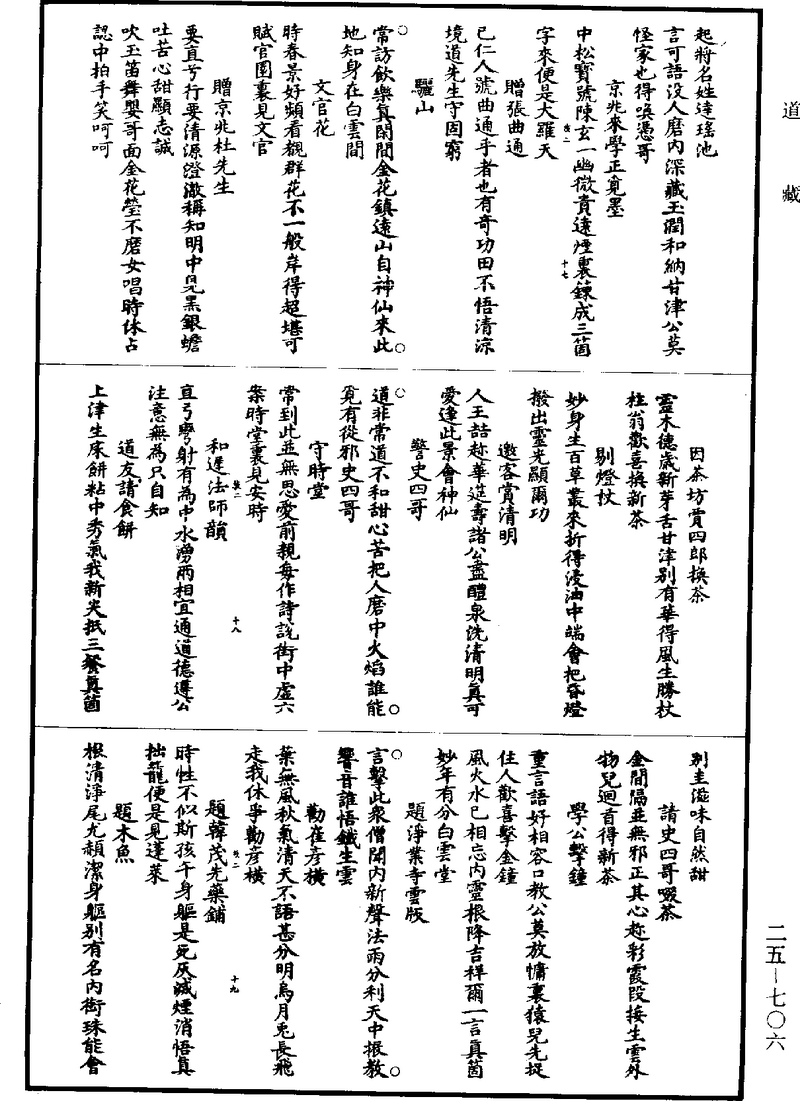 道藏
起將名姓達瑤池
言可語没人磨内深藏玉潤和納甘津公莫
怪家也得喚憑哥
京兆來學正覓墨
中松寶號陳玄一幽微貴遠煙裏鍊成三箇
字來便是大羅天
贈張曲通
已仁人號曲通乎者也有奇功田不悟清涼
境道先生守固窮
驪山
常訪飲樂真閑間金花鎮遠山自神仙來此
地知身在白雲間
文官花
時春景好頻看觀群花不一般岸得超堪可
賦官園裏見文官
贈京兆杜先生
要直兮行要清源澄澈稱知明中見黑銀蟾
吐苦心甜顯志誠
吹玉笛舞嬰哥面金花瑩不磨女唱時休占
認中拍手笑呵呵
十七
因茶坊賈四郎換茶
靈木德歲新芽舌甘津别有華得風生勝杖
柱翁歡喜換新茶
剔燈杖
妙身生百草叢來折得浸油中端會把昏燈
撥出靈光顯爾功
邀客賞清明
人王喆趂華筵壽諸公盡醴泉洗清明真可
愛逢此景會神仙
警史四哥
道非常道不和甜心苦把人磨中火焰誰能
覓有從邪史四哥
守時堂
常到此並無思愛前親每作詩説街中虛六
案時堂裏見安時
和遲法師韻
直弓彎射有為中水湧兩相宜通道德遵公
注意無為只自知
道友請食餅
上津生床餅粘中秀氣我新尖抵三餐真箇
十八
别圭滋味自然甜
請史四哥啜茶
金間隔並無邪正其心趂彩霞段接生雲外
物兒迴首得新茶
學公擊鐘
重言語好相容口教公莫放慵裏猿兒先捉
住人歡喜擊金鐘
風火水已相忘内靈根降吉祥爾一言真箇
妙年有分白雲堂
題淨業寺雲版
言擊此衆僧聞内新聲法雨分利天中振教
響音誰悟鐵生雲
勸崔彦橫
葉無風秋氣清天不語甚分明烏月兎長飛
走我休爭勸彦橫
題韓茂先藥鋪
時性不似斯孩千身軀是死灰滅煙消悟真
拙籠便是見蓬萊
題木魚
根清淨尾尢頳潔身軀别有名内銜珠能會
十九
二五—七〇六